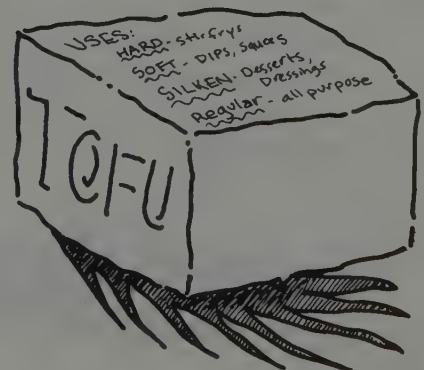 USES:
HARD - stir frys
SOFT - DIPS, sauces
SILKEN - Desserts,
Dressings
Regular - all purpose
TOFU